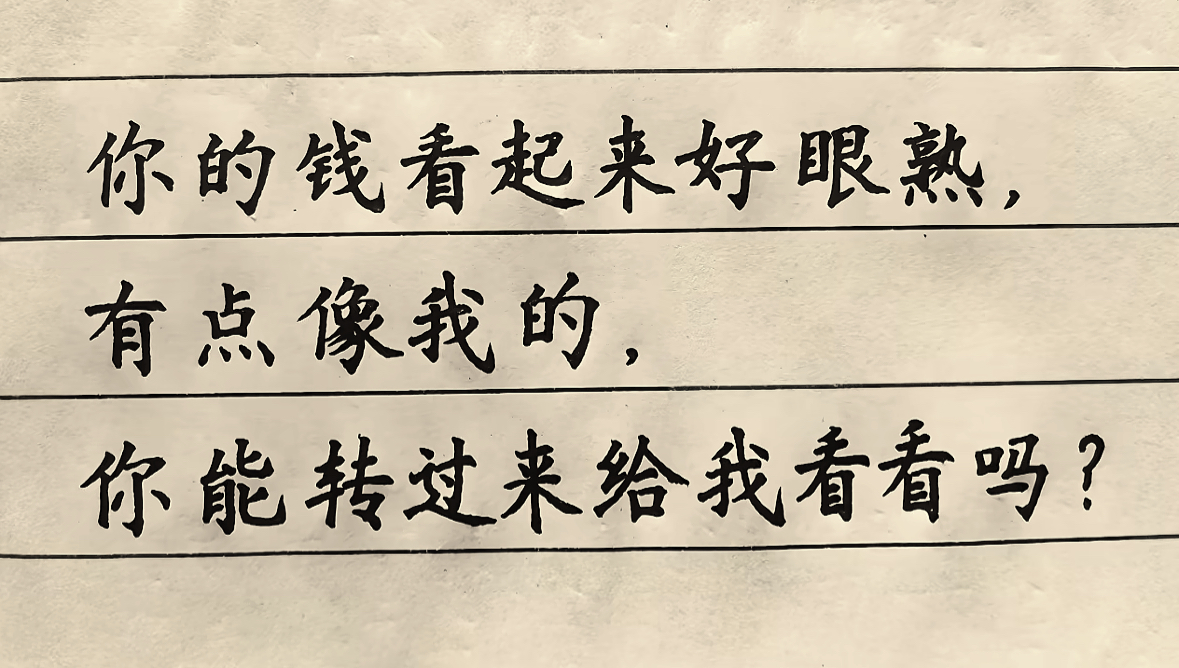 你的钱看起来好眼熟，
有点像我的，
你能转过来给我看看吗？